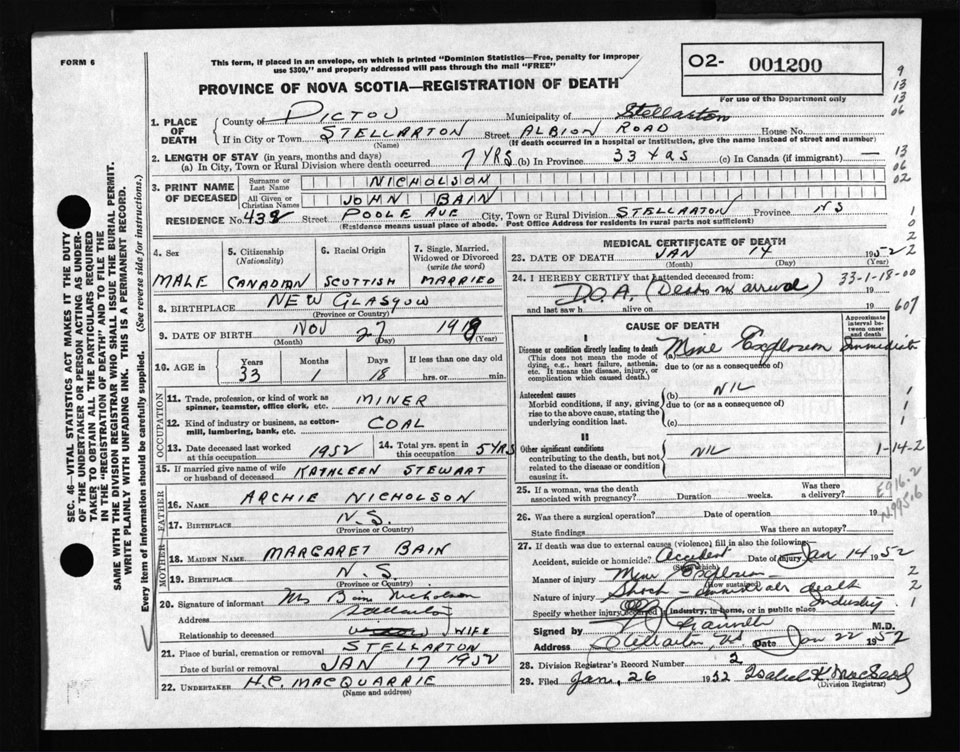 FORM 6
This form, if placed in an envelope, on which is printed "Dominion Statistics—Free, penalty for improper
use $300," and properly addressed will pass through the mail "FREE"
PROVINCE OF NOVA SCOTIA—REGISTRATION OF DEATH
O2- 001200
For use of the Department only
9
13
13
06
13
06
02
1
0
2
2
1. PLACE OF DEATH
County of PICTOU Municipality of Stellarton
If in City or Town STELLARTON Street ALBION ROAD House No.
(Name) (If death occurred in a hospital or institution, give the name instead of street and number)
2. LENGTH OF STAY (in years, months and days)
(a) In City, Town or Rural Division where death occurred 7 YRS (b) In Province 33 yrs (c) In Canada (if immigrant) —
3. PRINT NAME OF DECEASED
Surname or Last Name NICHOLSON
All Given or Christian Names JOHN BAIN
RESIDENCE No. 438 Street POOLE AVE City, Town or Rural Division STELLARTON Province N S
(Residence means usual place of abode. Post Office Address for residents in rural parts not sufficient)
4. Sex 5. Citizenship (Nationality) 6. Racial Origin 7. Single, Married, Widowed or Divorced (write the word)
MALE CANADIAN SCOTTISH MARRIED
8. BIRTHPLACE NEW GLASGOW
(Province or Country)
9. DATE OF BIRTH NOV 27 1918
(Month) (Day) (Year)
10. AGE in Years Months Days If less than one day old
33 1 18 hrs. or min.
OCCUPATION
11. Trade, profession, or kind of work as spinner, teamster, office clerk, etc. MINER
12. Kind of industry or business, as cotton-mill, lumbering, bank, etc. COAL
13. Date deceased last worked at this occupation 1952 14. Total yrs. spent in this occupation 5 YRS
15. If married give name of wife or husband of deceased KATHLEEN STEWART
FATHER
16. NAME ARCHIE NICHOLSON
17. BIRTHPLACE N.S.
(Province or Country)
MOTHER
18. MAIDEN NAME MARGARET BAIN
19. BIRTHPLACE N.S.
(Province or Country)
20. Signature of informant Mrs Bain Nicholson
Address Stellarton
Relationship to deceased WIFE
21. Place of burial, cremation or removal STELLARTON
Date of burial or removal JAN 17 1952
22. UNDERTAKER H.C. MACQUARRIE
(Name and address)
MEDICAL CERTIFICATE OF DEATH
23. DATE OF DEATH JAN 14 1952
(Month) (Day) (Year)
24. I HEREBY CERTIFY that I attended deceased from 33-1-18-00
D.O.A. (Dead on arrival) 19
and last saw h alive on 19
607
CAUSE OF DEATH
Approximate interval between onset and death
I
Disease or condition directly leading to death (a) Mine Explosion Immediate
(This does not mean the mode of dying, e.g., heart failure, asthenia, etc. It means the disease, injury, or complication which caused death.)
due to (or as a consequence of)
Antecedent causes (b) NIL
Morbid conditions, if any, giving rise to the above cause, stating the underlying condition last.
due to (or as a consequence of)
(c)
II
Other significant conditions NIL
contributing to the death, but not related to the disease or condition causing it.
1
1
1
1-14-2
25. If a woman, was the death associated with pregnancy? Duration weeks. Was there a delivery?
E916.2
N995.6
26. Was there a surgical operation? Date of operation 19
State findings Was there an autopsy?
27. If death was due to external causes (violence) fill in also the following:
Accident, suicide or homicide? Accident Date of injury Jan 14 1952
(State which)
Manner of injury Mine Explosion 2
(How sustained)
Nature of injury Shock — immediate death 2
Specify whether injury occurred in industry, in home, or in public place Industry 1
Signed by M.D.
Address Stellarton, N.S. Date Jan 22 1952
28. Division Registrar's Record Number 2
29. Filed Jan. 26 1952 Isabel K.
(Division Registrar)
SEC. 46—VITAL STATISTICS ACT MAKES IT THE DUTY
OF THE UNDERTAKER OR PERSON ACTING AS UNDER-
TAKER TO OBTAIN ALL THE PARTICULARS REQUIRED
IN THE "REGISTRATION OF DEATH" AND TO FILE THE
SAME WITH THE DIVISION REGISTRAR WHO SHALL ISSUE THE BURIAL PERMIT.
WRITE PLAINLY WITH UNFADING INK. THIS IS A PERMANENT RECORD.
Every item of information should be carefully supplied. (See reverse side for instructions.)